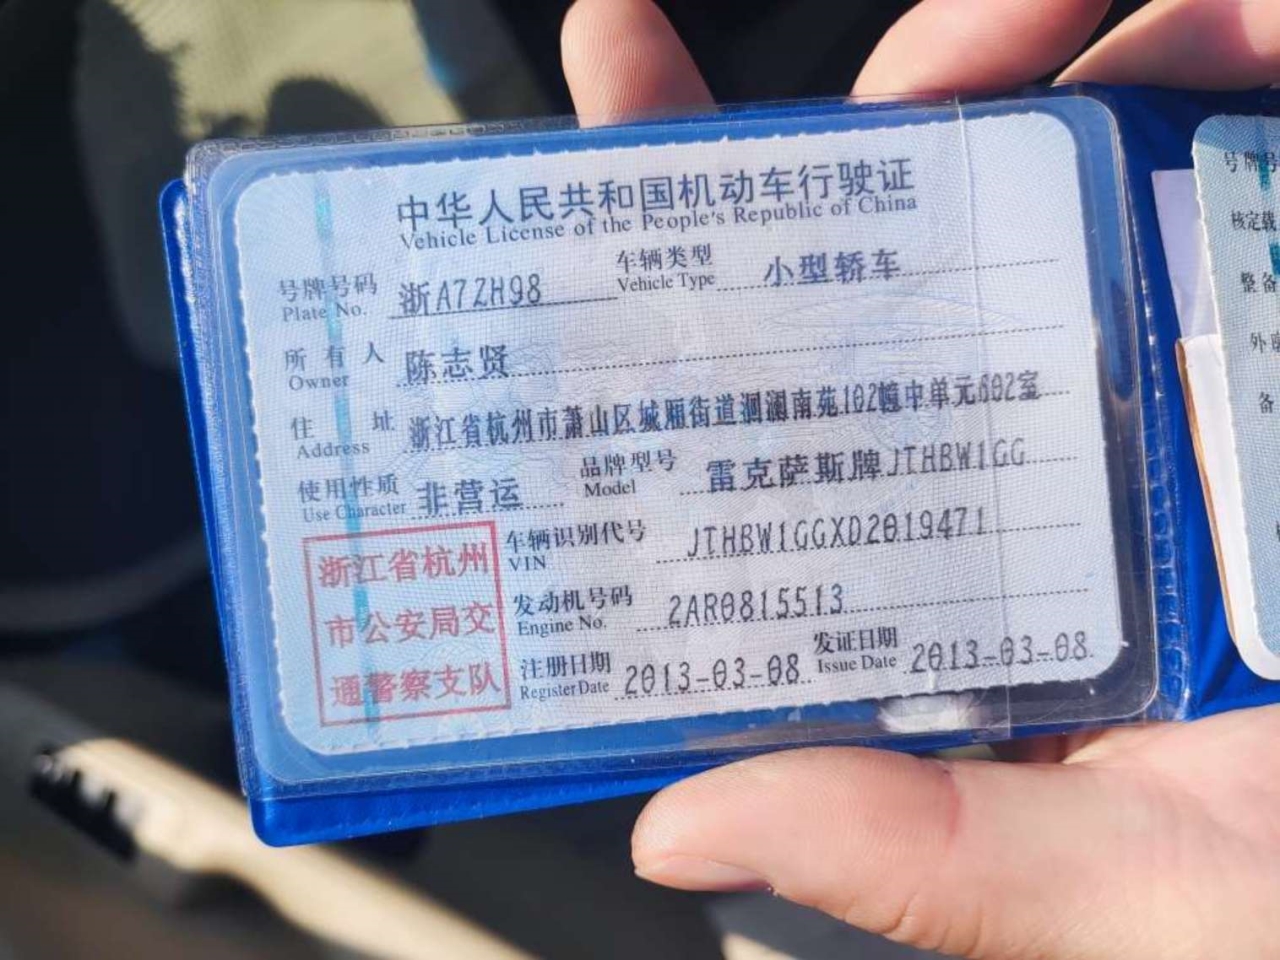 中华人民共和国机动车行驶证
Vehicle License of the People's Republic of China
号牌号码 浙A7ZH98 车辆类型 小型轿车
Plate No. Vehicle Type
所有人 陈志贤
Owner
住址 浙江省杭州市萧山区城厢街道洄澜南苑102幢中单元602室
Address
使用性质 非营运 品牌型号 雷克萨斯牌JTHBW1GG
Use Character Model
车辆识别代号 JTHBW1GGXD2019471
VIN
发动机号码 2AR0815513
Engine No.
注册日期 2013-03-08 发证日期 2013-03-08
Register Date Issue Date
浙江省杭州
市公安局交
通警察支队
号牌号
核定载
整备
外廓
备